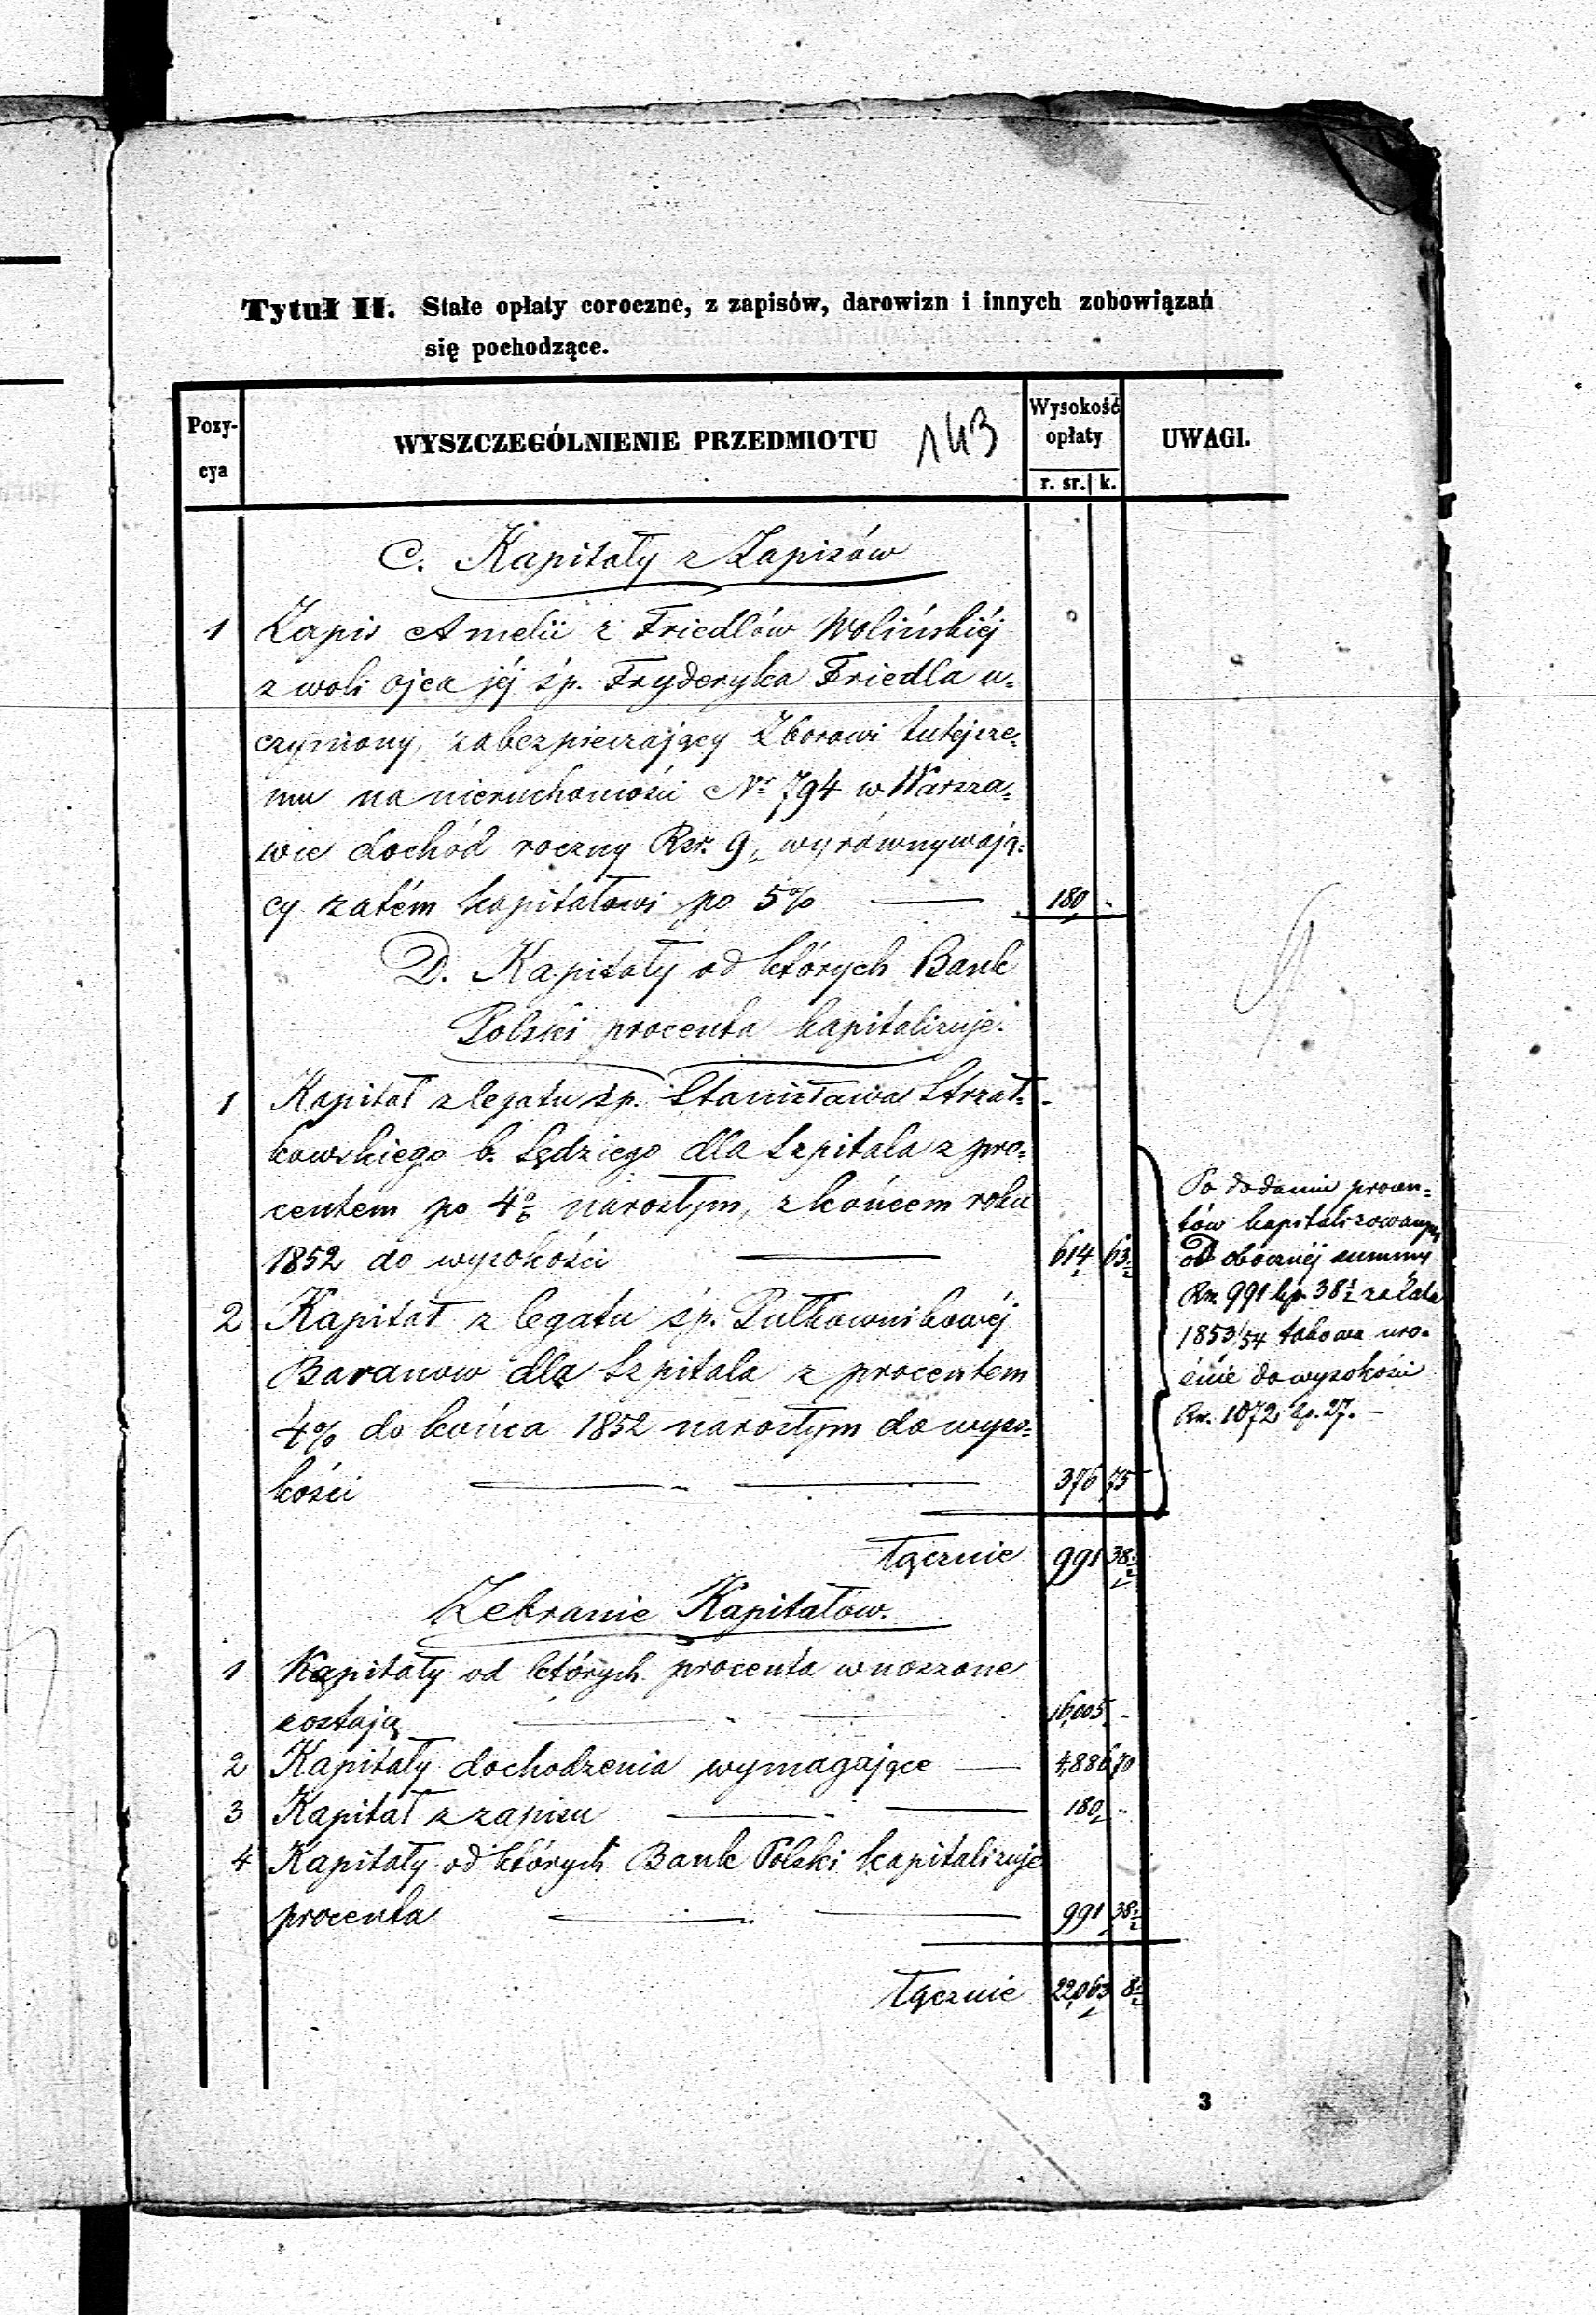 Tytuł II. Stałe opłaty coroczne, z zapisów, darowizn i innych zobowiązań
się pochodzące.
Pozy-
cya
WYSZCZEGÓLNIENIE PRZEDMIOTU 143
Wysokość
opłaty
r. sr. k.
UWAGI.
C. Kapitały z Zapisów
1 Zapis Amelii z Friedlów Wolińskiéj
z woli ojca jéj śp. Fryderyka Friedla u=
czyniony, zabezpieczający Zborowi tutejsze=
mu na nieruchomości Nr 794 w Warsza=
wie dochód roczny Rsr. 9, wyrównywają=
cy zatém kapitałowi po 5% — 180 "
D. Kapitały od których Bank
Polski procenta kapitalizuje.
1 Kapitał z legatu śp. Stanisława Strzał=
kowskiego b. Sędziego dla Szpitala z pro=
centem po 4% narosłym, z końcem roku
1852 do wysokości — 614 63 1/2
2 Kapitał z legatu śp. Pułkownikowéj
Baranow dla Szpitala z procentem
4% do końca 1852 narosłym do wyso=
kości — 376 75
Po dodaniu procen=
tów kapitalizowanych
od obocznéj summy
Rsr. 991 kp. 38 1/2 za lata
1853/54 takowa uro=
śnie do wysokości
Rsr. 1072 kp. 27. —
łącznie 991 38 1/2
Zebranie Kapitałów.
1 Kapitały od których procenta wnoszone
zostają — 16,005 "
2 Kapitały dochodzenia wymagające — 4,886 70
3 Kapitał z zapisu — 180 "
4 Kapitały od których Bank Polski kapitalizuje
procenta — 991 38 1/2
łącznie 22,063 8 1/2
3